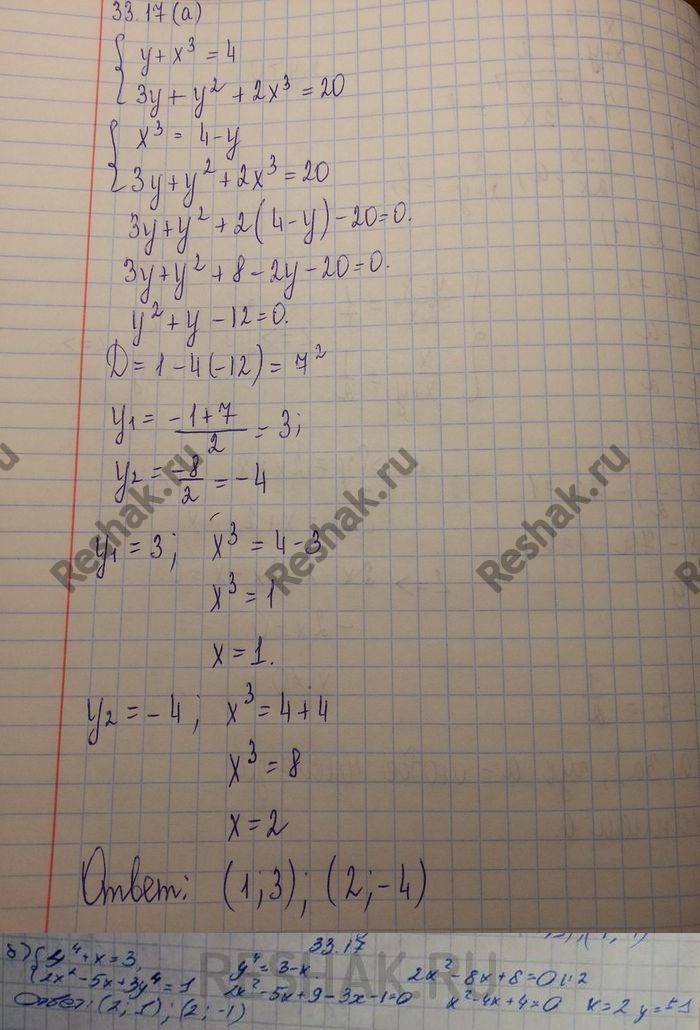 33.17 (а)
{ y + x³ = 4
{ 3y + y² + 2x³ = 20
{ x³ = 4 - y
{ 3y + y² + 2x³ = 20
3y + y² + 2(4 - y) - 20 = 0.
3y + y² + 8 - 2y - 20 = 0.
y² + y - 12 = 0.
D = 1 - 4(-12) = 7²
y₁ = (-1+7)/2 = 3;
y₂ = -8/2 = -4
y₁ = 3; x³ = 4 - 3
x³ = 1
x = 1.
y₂ = -4; x³ = 4 + 4
x³ = 8
x = 2
Ответ: (1; 3); (2; -4)
Reshak.ru Reshak.ru Reshak.ru
33.17
б) { y⁴ + x = 3, y⁴ = 3 - x. 2x² - 8x + 8 = 0 |:2
{ 2x² - 5x + 3y⁴ = 1 2x² - 5x + 9 - 3x - 1 = 0 x² - 4x + 4 = 0 x = 2 y = ±1
Ответ: (2; 1); (2; -1)
RESHAK.RU